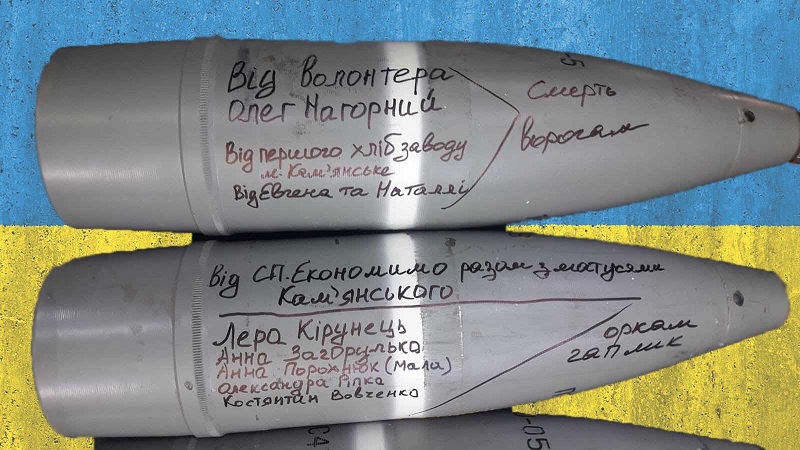 Від Волонтера
Олег Нагорний
Від першого хлібзаводу
м. Кам'янське
Від Євгена та Наталії
Смерть
ворогам
-5
Від СП. Економимо разом з матусями
Кам'янського
Лера Кірунець
Анна Загорулько
Анна Порохнюк (мала)
Олександра Ріпка
Костянтин Вовченко
оркам
гаплик
-05